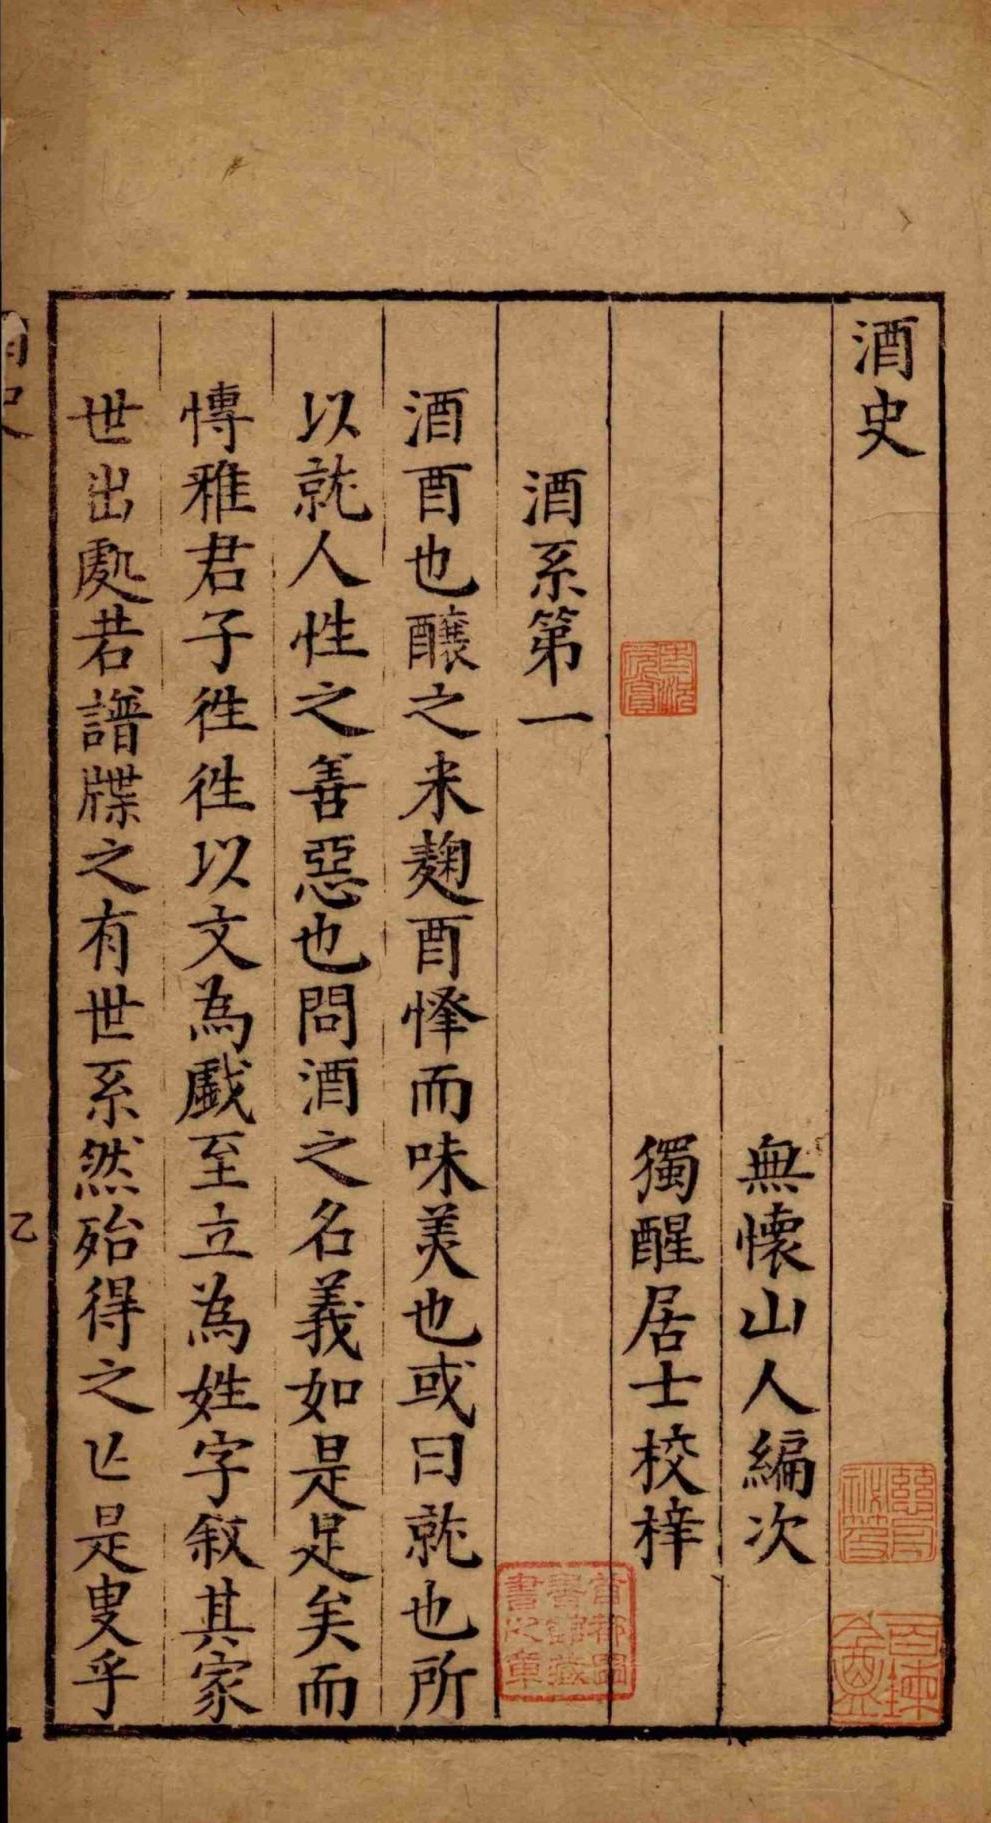 酒史
無懷山人編次
獨醒居士校梓
酒系第一
酒酉也釀之米麹酉懌而味美也或曰就也所
以就人性之善惡也問酒之名義如是足矣而
愽雅君子徃徃以文為戲至立為姓字叙其家
世出處若譜牒之有世系然殆得之亾是叟乎
首都圖
書館藏
書之章
酒史
乙